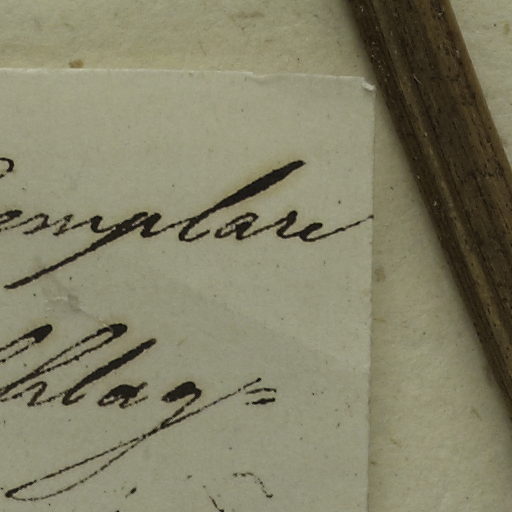 Exemplare
schlag=